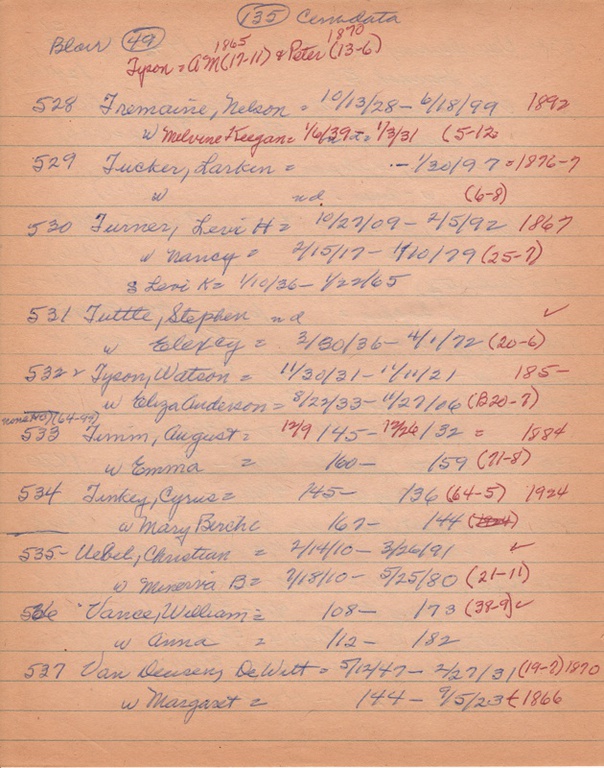 135 Cem. data
Blair 49
1865 1870
Tyson = A M (17-11) & Peter (13-6)
528 Tremaine, Nelson = 10/13/28 - 6/18/99 1892
w Melvine Keegan = 1/6/39 = 1/3/31 (5-12
529 Tucker, Larkin = - 1/30/97 = 1876-7
w nd (6-8)
530 Turner, Levi H = 10/27/09 - 2/5/92 1867
w Nancy = 2/15/17 - 11/10/79 (25-7)
S Levi K = 1/10/36 - 1/22/65
531 Tuttle, Stephen nd ✓
w Elexey = 3/30/36 - 4/1/72 (20-6)
532 Tyson, Watson = 11/30/31 - 11/11/21 185-
w Eliza Anderson = 8/22/33 - 11/27/06 (B20-7)
533 Timm, August = 12/9/45 - 12/26/32 = 1884
w Emma = 160- 159 (71-8)
534 Tinkey, Cyrus = 145- 136 (64-5) 1924
w Mary Berch 167- 144
535- Uebel, Christian = 2/14/10 - 3/26/91 ✓
w Minerva B = 7/18/10 - 5/25/80 (21-11)
536 Vance, William = 108- 173 (38-9) ✓
w Anna = 112- 182
537 Van Deusen, DeWitt = 5/12/47 - 2/27/31 (19-7) 1870
w Margaret = 144 - 9/5/23 1866